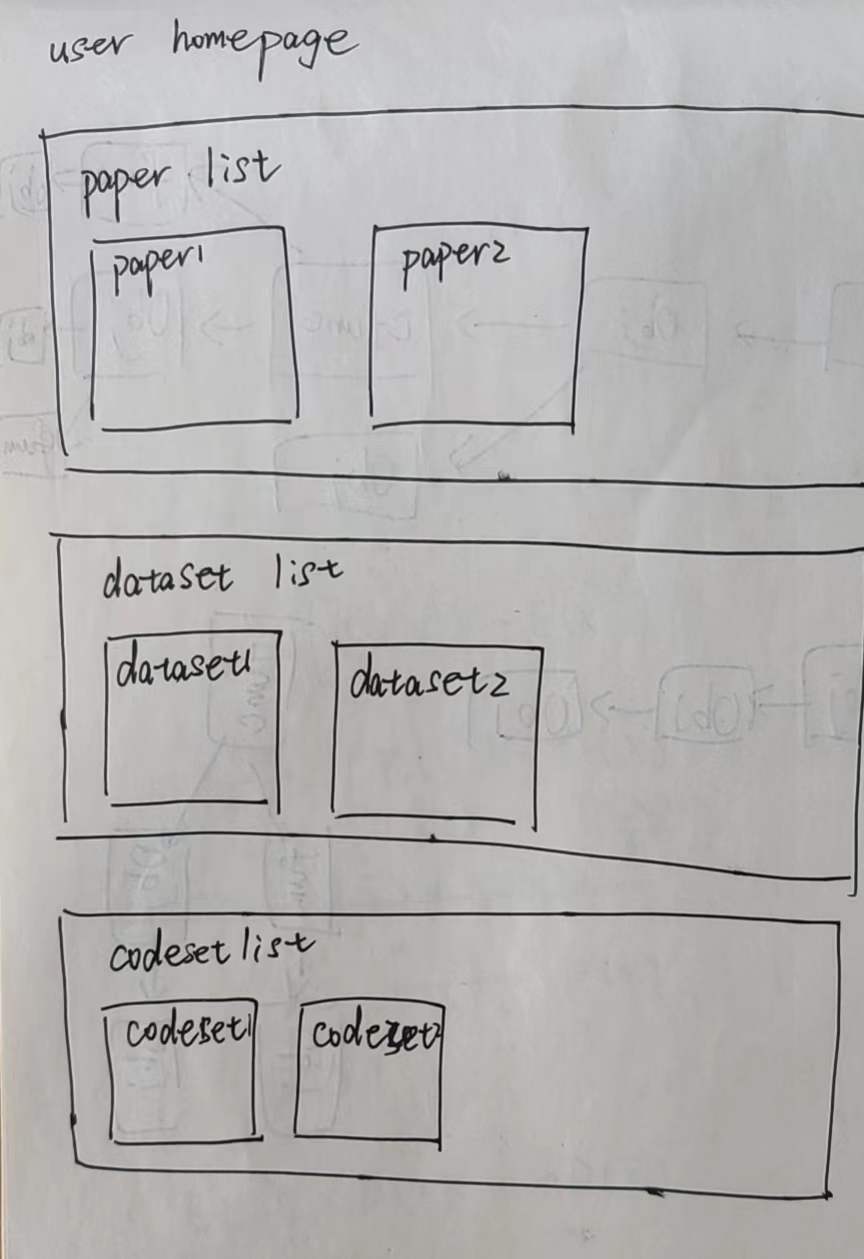 user homepage
paper list
paper1 paper2
dataset list
dataset1 dataset2
codeset list
codeset1 codeset2